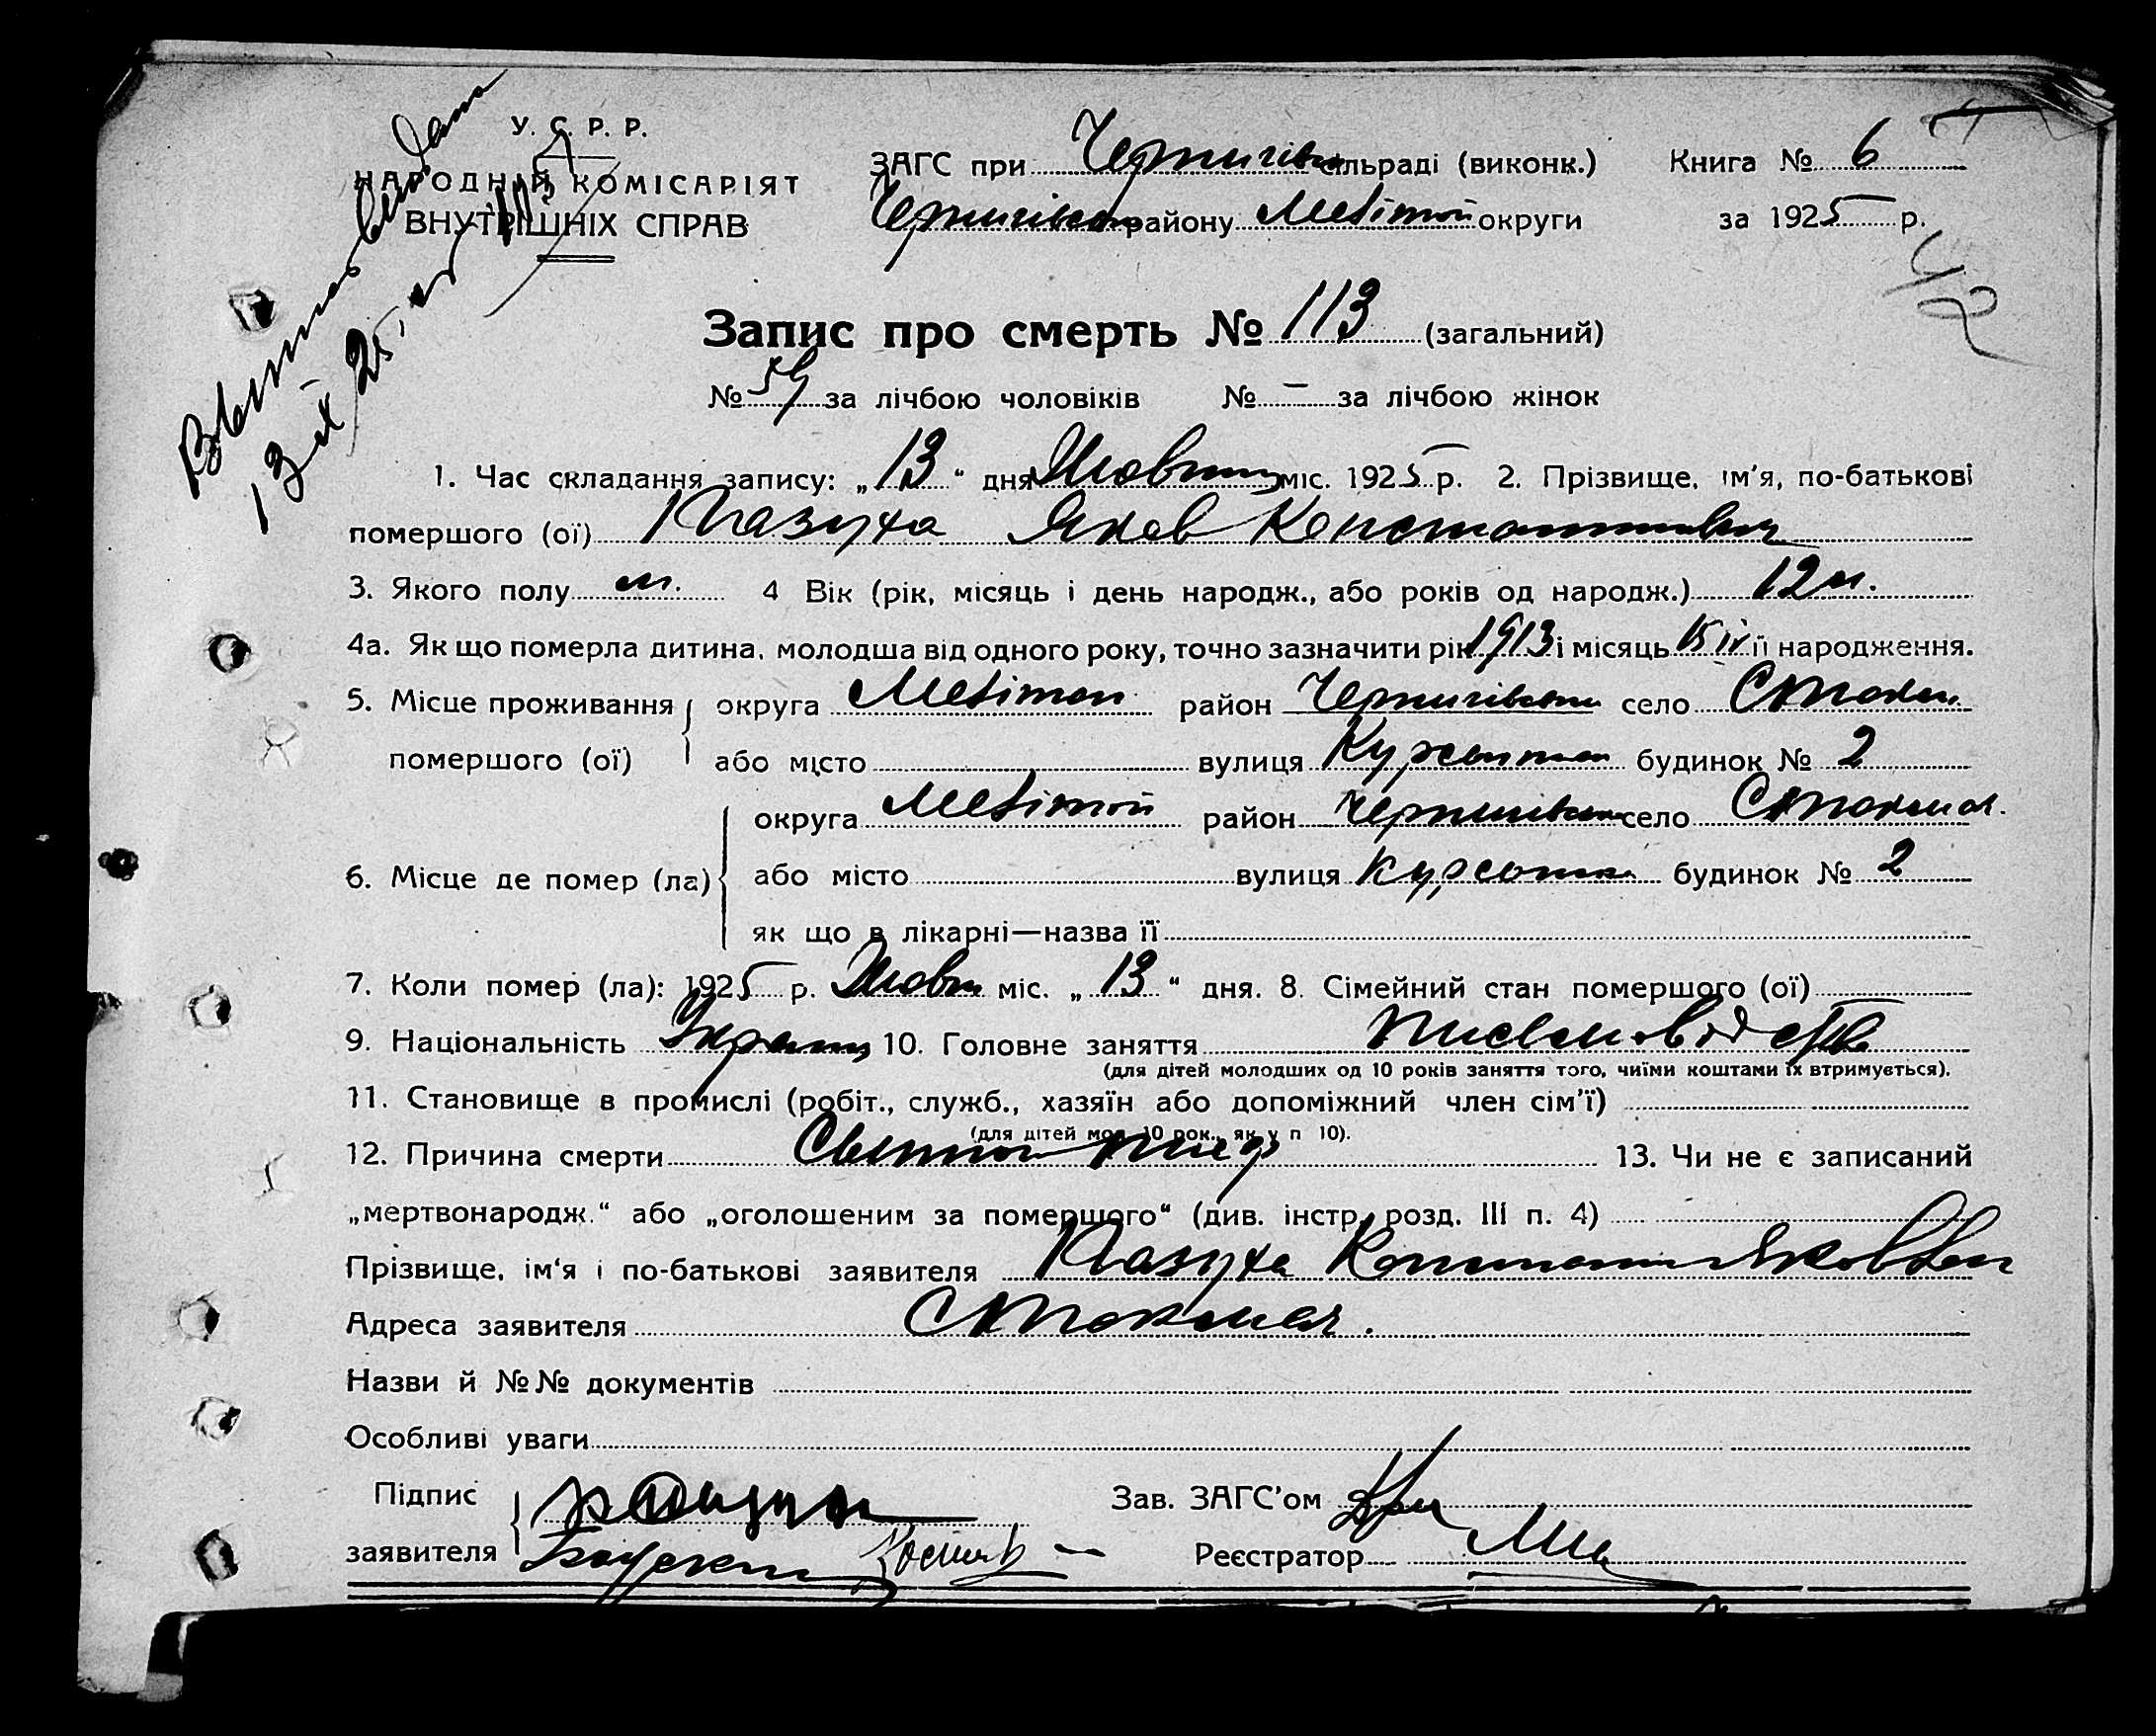 У. С. Р. Р.
НАРОДНІЙ КОМІСАРІЯТ
ВНУТРІШНІХ СПРАВ
ЗАГС при Чернигівск сільраді (виконк.) Книга № 6
Чернигівском району Мелітоп округи за 1925 р.
42
Запис про смерть № 113 (загальний)
№ 59 за лічбою чоловіків № – за лічбою жінок
1. Час складання запису: „13“ дня Жовтня міс. 1925 р. 2. Прізвище, ім'я, по-батькові
помершого (ої) Пазуха Яков Константинович
3. Якого полу м. 4 Вік (рік, місяць і день народж., або років од народж.) 12 л.
4а. Як що померла дитина, молодша від одного року, точно зазначити рік 1913 і місяць 15 IV її народження.
5. Місце проживання округа Мелітоп район Чернигівськ село Стокоп.
помершого (ої) або місто вулиця будинок № 2
округа Мелітоп район Чернигівськ село
6. Місце де помер (ла) або місто вулиця будинок № 2
як що в лікарні—назва її
7. Коли помер (ла): 1925 р. Жовтн міс. „13“ дня. 8. Сімейний стан помершого (ої)
9. Національність Украинц 10. Головне заняття
(для дітей молодших од 10 років заняття того, чиїми коштами їх втримується).
11. Становище в промислі (робіт., служб., хазяїн або допоміжний член сім'ї)
(для дітей мол. 10 рок., як у п 10).
12. Причина смерти 13. Чи не є записаний
„мертвонародж.“ або „оголошеним за померщого“ (див. інстр. розд. III п. 4)
Прізвище, ім'я і по-батькові заявителя Пазуха Константин Яковлев
Адреса заявителя
Назви й №№ документів
Особливі уваги
Підпис
заявителя
Зав. ЗАГС'ом
Реєстратор